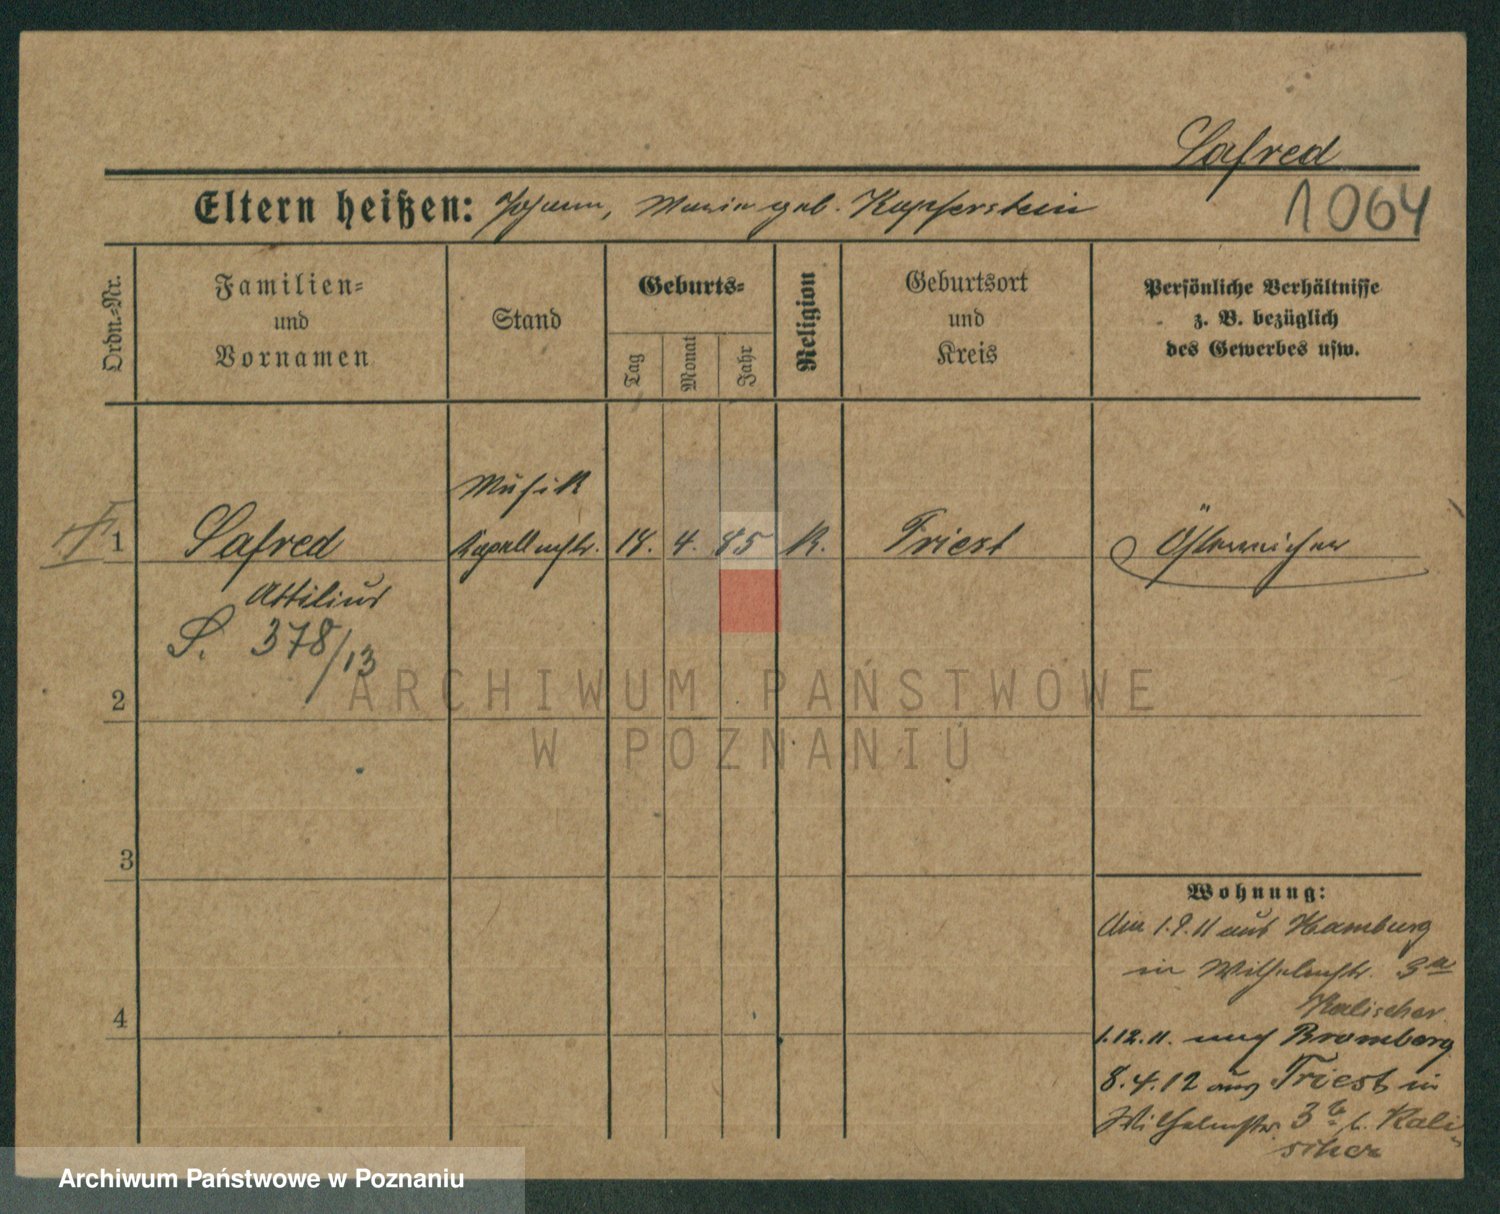 Safred
1064
Eltern heißen: Johann, Maria geb. Kupferstein
Ordn.-Nr.
Familien- und Vornamen
Stand
Geburts-
Tag
Monat
Jahr
Religion
Geburtsort und Kreis
Persönliche Verhältnisse z. B. bezüglich des Gewerbes usw.
Musik
1 Safred Kapellmstr. 18. 4. 85 K. Triest Österreicher
Attilius
S. 378/13
2
3
4
Wohnung:
Am 1.9.11 aus Hamburg
in Wilhelmstr. 3a
Kalischer
1.12.11. nach Bromberg
8.4.12 aus Triest in
Wilhelmstr. 3b b. Kali-
scher
ARCHIWUM PAŃSTWOWE
W POZNANIU
Archiwum Państwowe w Poznaniu